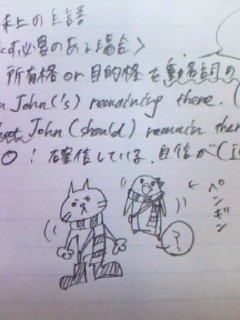 上の主語
必要のある場合>
所有格or目的格を動名詞の
John('s) remaining there. (
John (should) remain the
○! 確信している,自信が(i
ペンギン
?